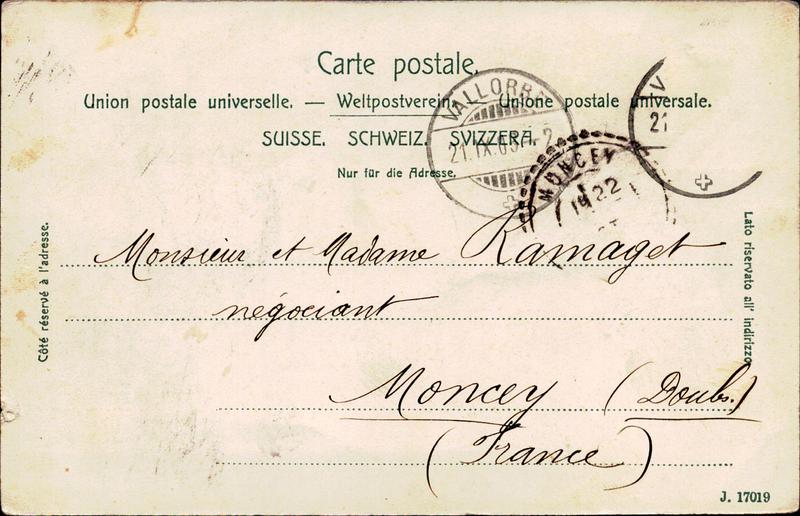 Carte postale.
Union postale universelle. — Weltpostverein. — Unione postale universale.
SUISSE. SCHWEIZ. SVIZZERA.
Nur für die Adresse.
VALLORBE
21.IX.05.
V
21
MONCEY
22
Côté réservé à l'adresse.
Lato riservato all' indirizzo.
Monsieur et Madame Ramaget
négociant
Moncey (Doubs.)
(France)
J. 17019